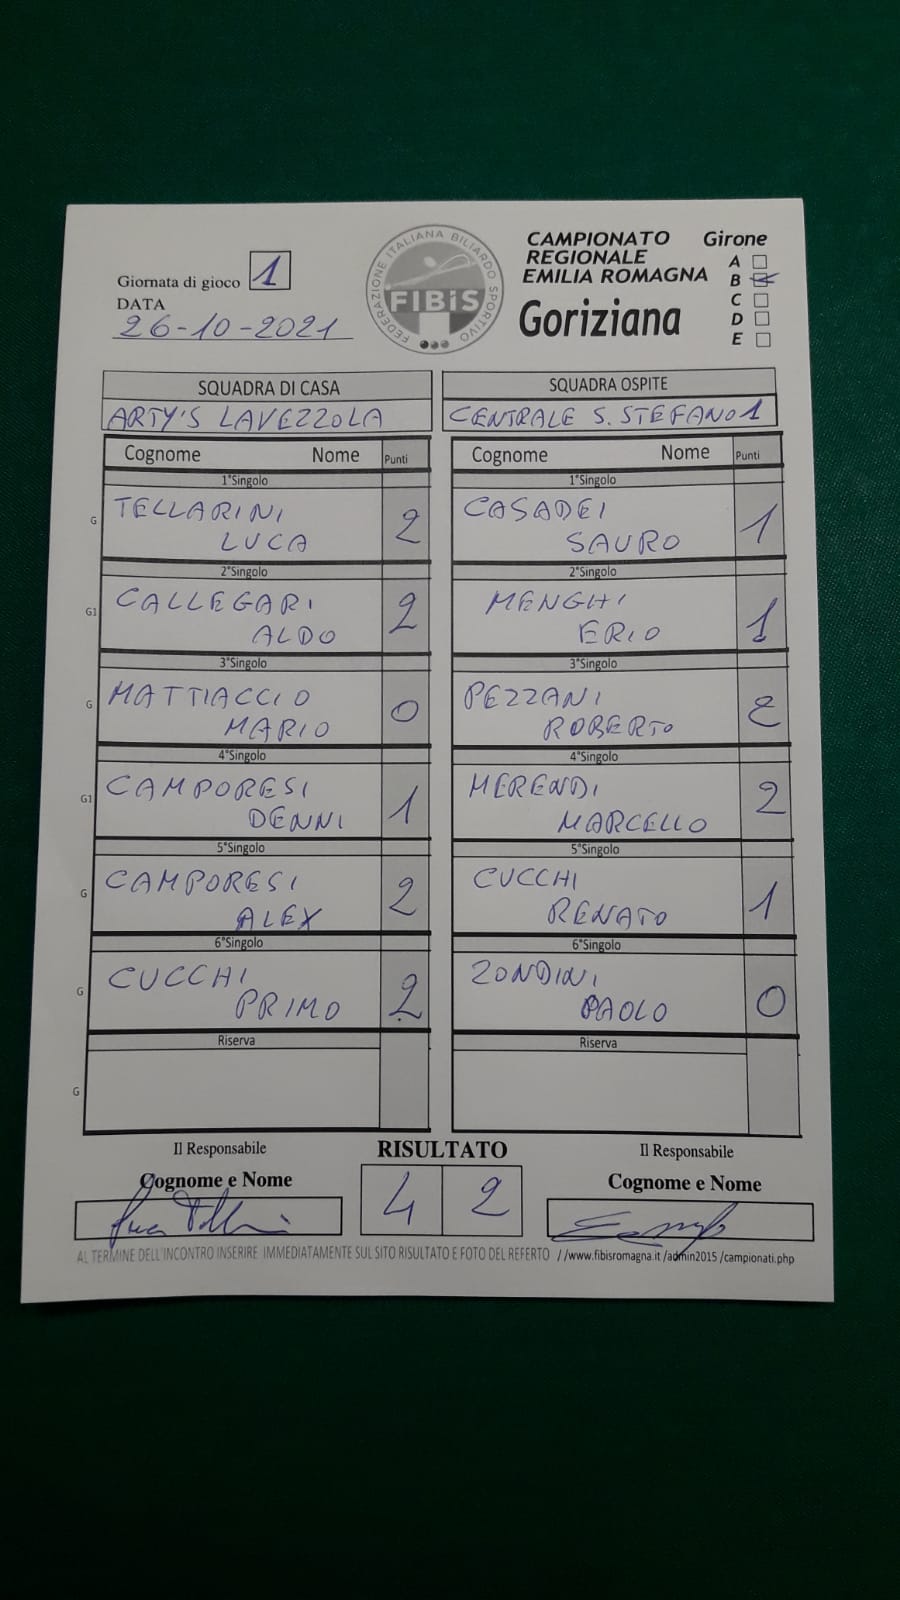 Giornata di gioco 1
DATA
26-10-2021
FEDERAZIONE ITALIANA BILIARDO SPORTIVO
FIBiS
CAMPIONATO
REGIONALE
EMILIA ROMAGNA
Goriziana
Girone
A
B
C
D
E
SQUADRA DI CASA
ARTY'S LAVEZZOLA
SQUADRA OSPITE
CENTRALE S. STEFANO 1
Cognome Nome Punti
Cognome Nome Punti
1°Singolo
1°Singolo
G TELLARINI
LUCA 2
CASADEI
SAURO 1
2°Singolo
2°Singolo
G1 CALLEGARI
ALDO 2
MENGHI
ERIO 1
3°Singolo
3°Singolo
G MATTIACCIO
MARIO 0
PEZZANI
ROBERTO 2
4°Singolo
4°Singolo
G1 CAMPORESI
DENNI 1
MERENDI
MARCELLO 2
5°Singolo
5°Singolo
G CAMPORESI
ALEX 2
CUCCHI
RENATO 1
6°Singolo
6°Singolo
G CUCCHI
PRIMO 2
ZONDINI
PAOLO 0
Riserva
Riserva
G
Il Responsabile
Cognome e Nome
RISULTATO
4 2
Il Responsabile
Cognome e Nome
AL TERMINE DELL'INCONTRO INSERIRE IMMEDIATAMENTE SUL SITO RISULTATO E FOTO DEL REFERTO //www.fibisromagna.it /admin2015 /campionati.php